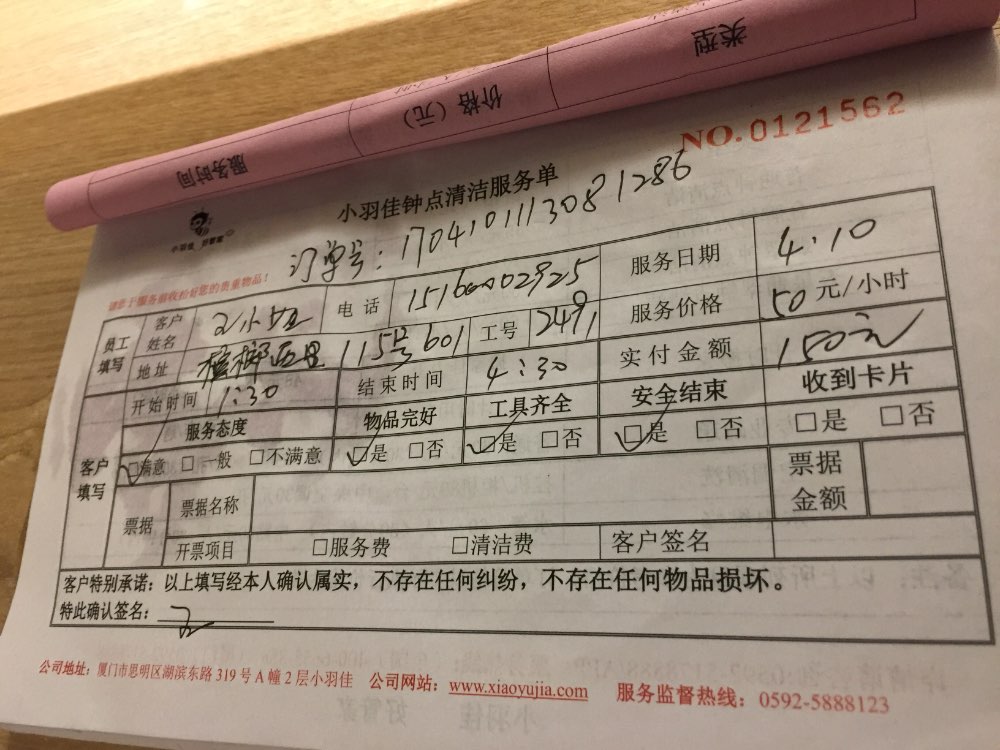 类型
价格（元）
服务时间
NO.0121562
小羽佳钟点清洁服务单
小羽佳 好管家
订单号：1704101113081286
请您于服务前收拾好您的贵重物品！
员工填写 客户姓名 电话 服务日期 4.10
地址 槟榔西里 115号601 工号 2491 服务价格 50元/小时
开始时间 1:30 结束时间 4:30 实付金额 150元
客户填写 服务态度 物品完好 工具齐全 安全结束 收到卡片
☑满意 □一般 □不满意 ☑是 □否 ☑是 □否 ☑是 □否 □是 □否
票据 票据名称 票据金额
开票项目 □服务费 □清洁费 客户签名
客户特别承诺：以上填写经本人确认属实，不存在任何纠纷，不存在任何物品损坏。
特此确认签名：
公司地址：厦门市思明区湖滨东路319号A幢2层小羽佳 公司网站：www.xiaoyujia.com 服务监督热线：0592-5888123